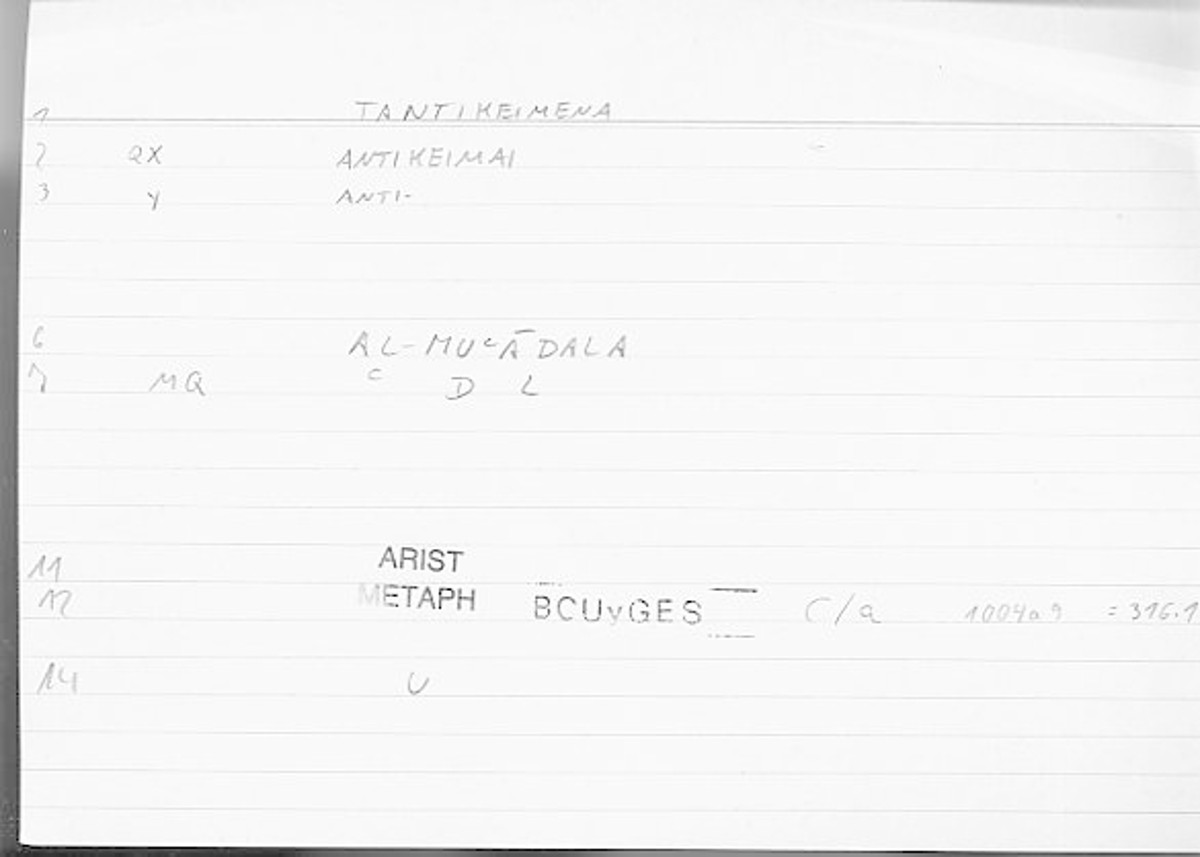 1 TANTIKEIMENA
2 QX ANTIKEIMAI
3 Y ANTI-
6 AL-MUʿĀDALA
7 MQ ʿ D L
11 ARIST
12 METAPH BCUyGES C/a 1004a9 = 316.1
14 U